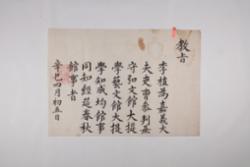 教旨
李植爲嘉義大
夫吏曹參判兼
守弘文館大提
學藝文館大提
學知成均館事
同知經筵春秋
館事者
辛巳四月初五日